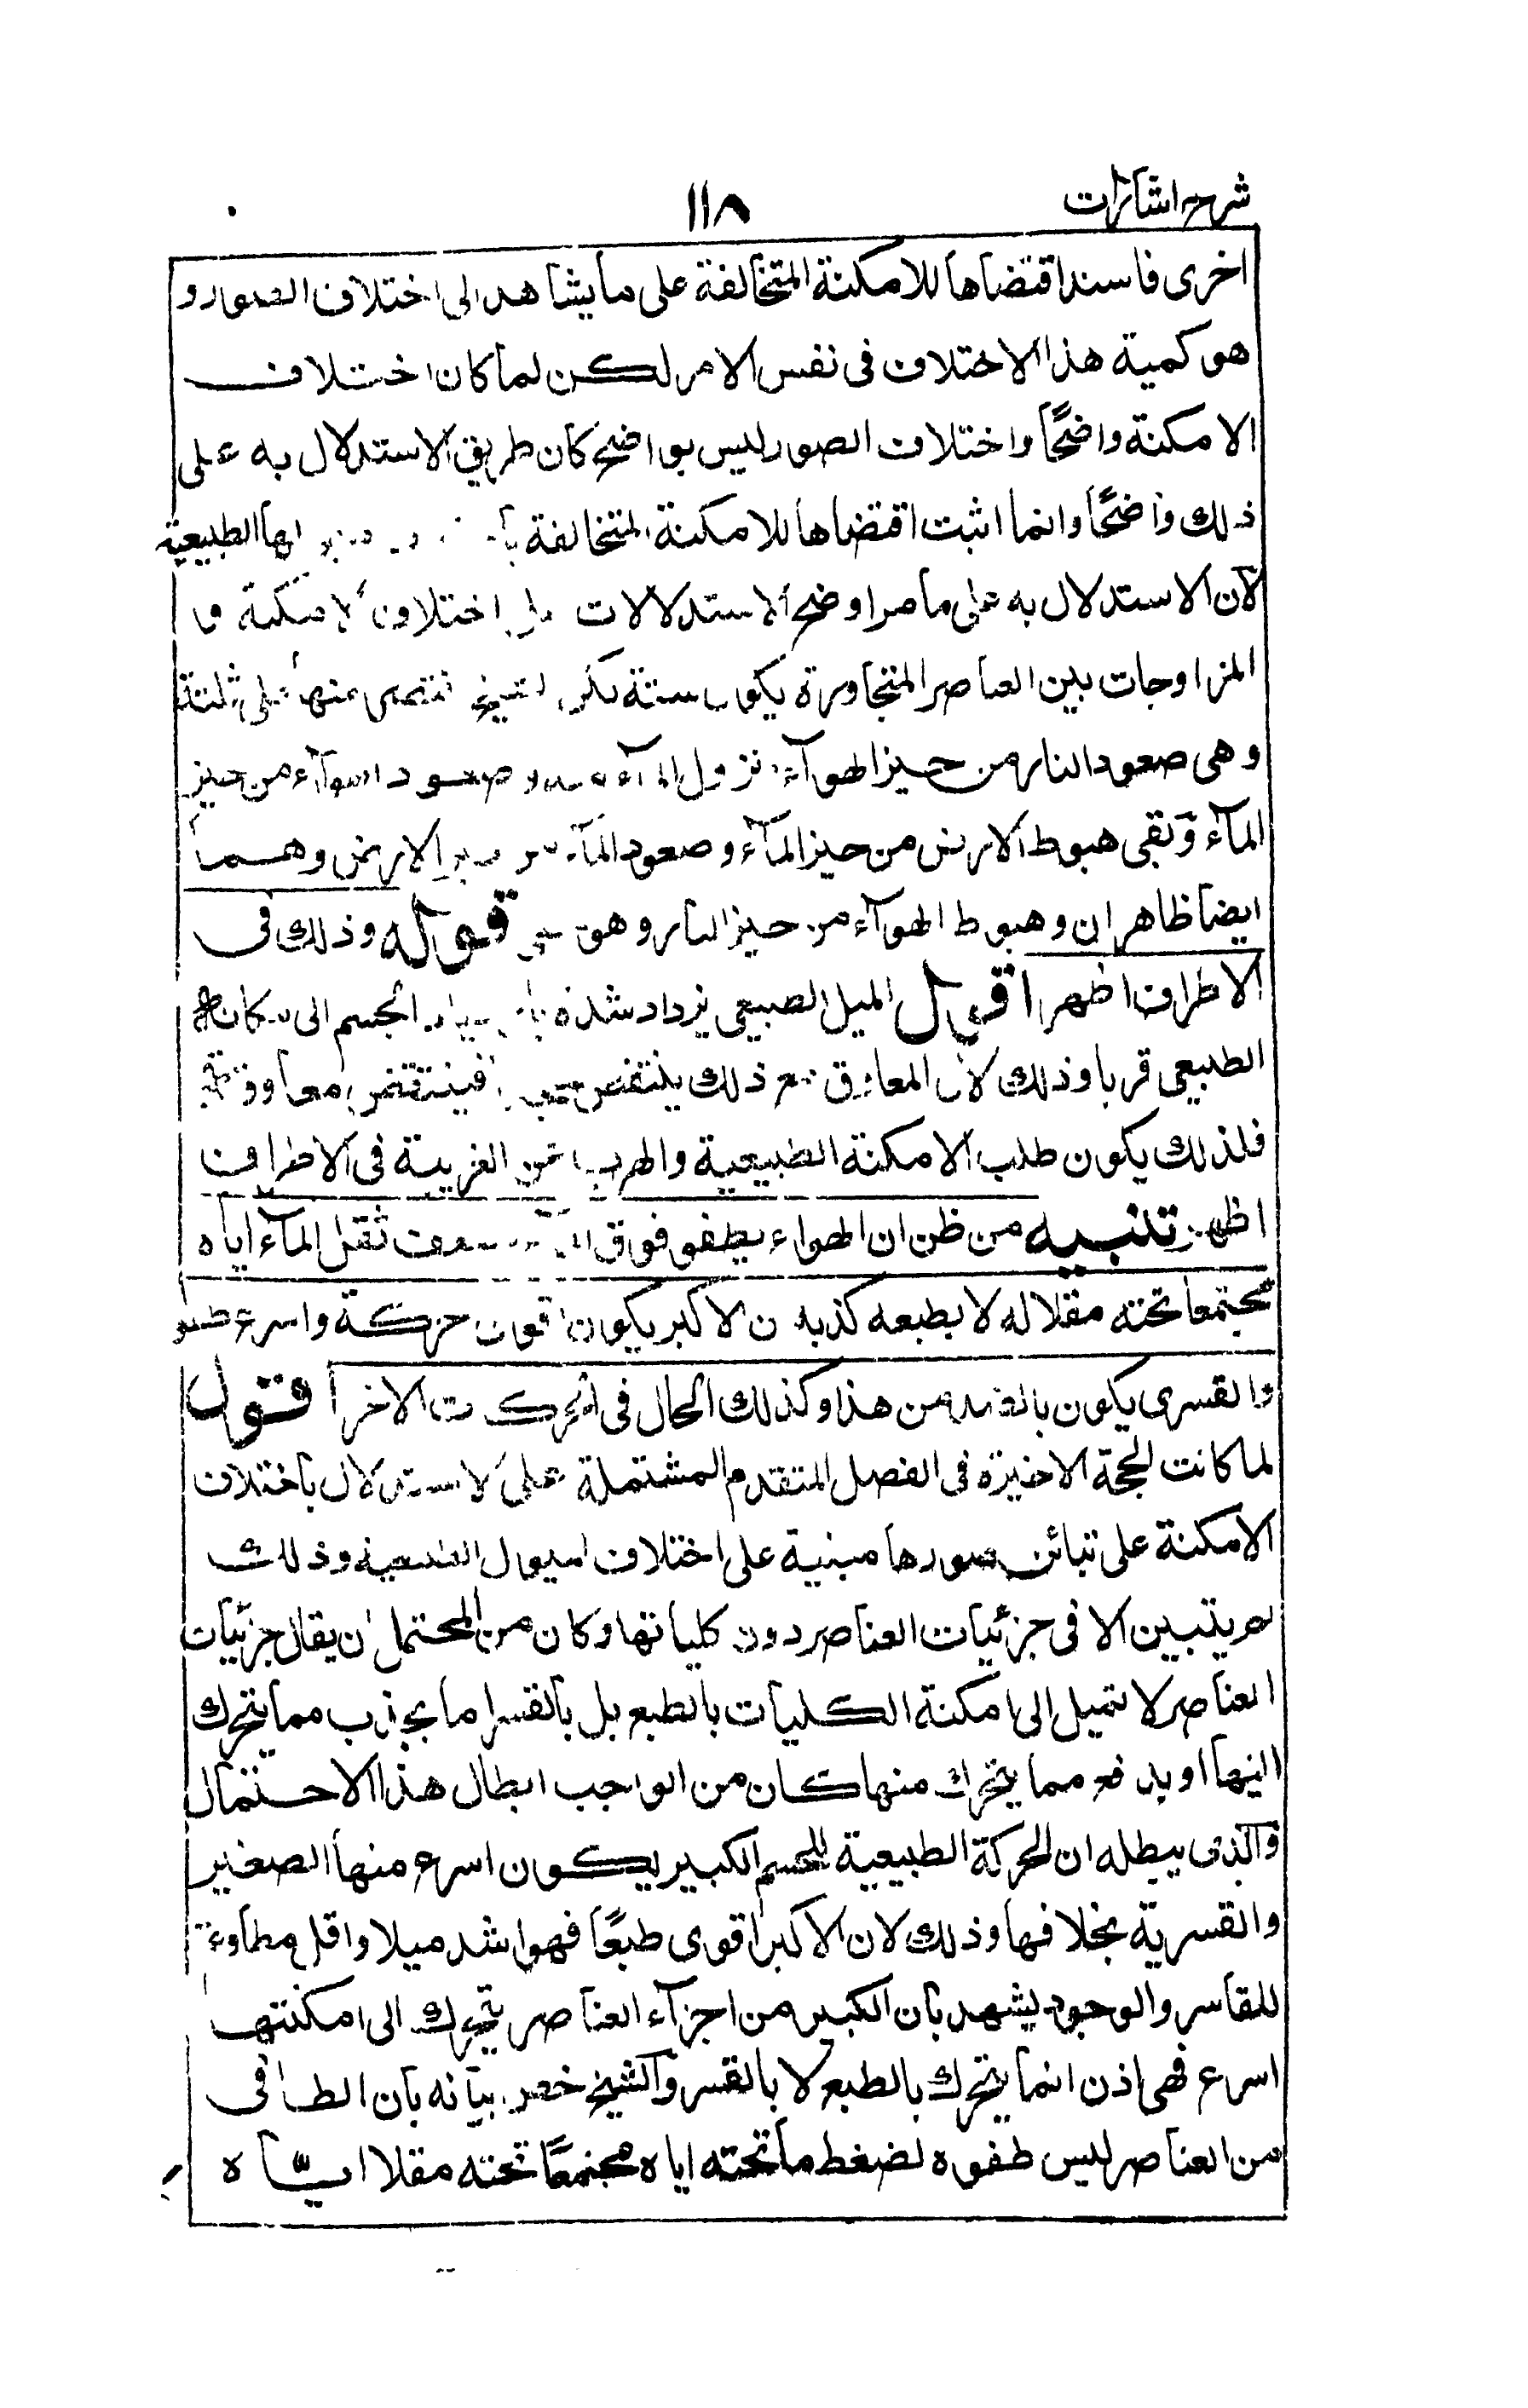 شرح اشارات
١١٨
اخرى فاسند اقتضاها للامكنة المتخالفة على ما يشاهد الى اختلاف الصور و
هو كمية هذا الاختلاف فى نفس الامر لكن لما كان اختلاف
الامكنة واضحًا واختلاف الصور ليس بواضح كان طريق الاستدلال به على
ذلك واضحًا وانما اثبت اقتضاها للامكنة المتخالفة الطبيعية
لان الاستدلال به على ما مر اوضح الاستدلالات على اختلاف الامكنة
المزاوجات بين العناصر المتجاورة يكون ستة لكن الشيخ اقتصر منها على ثلثة
وهى صعود النار من حيز الهوآء ونزول المآء منه وصعود الهوآء من حيز
المآء وبقى هبوط الارض من حيز المآء وصعود المآء من حيز الارض وهما
ايضا ظاهران وهبوط الهوآء من حيز النار وهو خفى قوله وذلك فى
الاطراف اظهر اقول الميل الطبيعى يزداد شدة الجسم الى مكانه
الطبيعى قربا وذلك لان المعاوق مع ذلك ينتقص فينتقص معاوقته
فلذلك يكون طلب الامكنة الطبيعية والهرب عن الغريبة فى الاطراف
اظهر تنبيه من ظن ان الهواء يطفو فوق المآء لضغط ثقل المآء اياه
مجتمعا تحته مقلا له لا بطبعه كذبه ان الاكبر يكون اقوى حركة واسرع طفوا
والقسرى يكون بالضد من هذا وكذلك الحال فى الحركات الاخر اقول
لما كانت الحجة الاخيرة فى الفصل المتقدم المشتملة على الاستدلال باختلاف
الامكنة على تبائن صورها مبنية على اختلاف الميول الطبيعية وذلك
لم يتبين الا فى جزئيات العناصر دون كلياتها وكان من المحتمل ان يقال جزئيات
العناصر لا تميل الى امكنة الكليات بالطبع بل بالقسر اما بجذب مما يتحرك
اليها او بدفع مما يتحرك منها كان من الواجب ابطال هذا الاحتمال
والذى يبطله ان الحركة الطبيعية للجسم الكبير يكون اسرع منها الصغير
والقسرية بخلافها وذلك لان الاكبر اقوى طبعًا فهو اشد ميلا واقل مطاوعة
للقاسر والوجود يشهد بان الكبير من اجزآء العناصر يتحرك الى امكنتها
اسرع فهى اذن انما يتحرك بالطبع لا بالقسر والشيخ خص بيانه بان الطافى
من العناصر ليس طفوه لضغط ما تحته اياه مجتمعًا تحته مقلا ايّاه